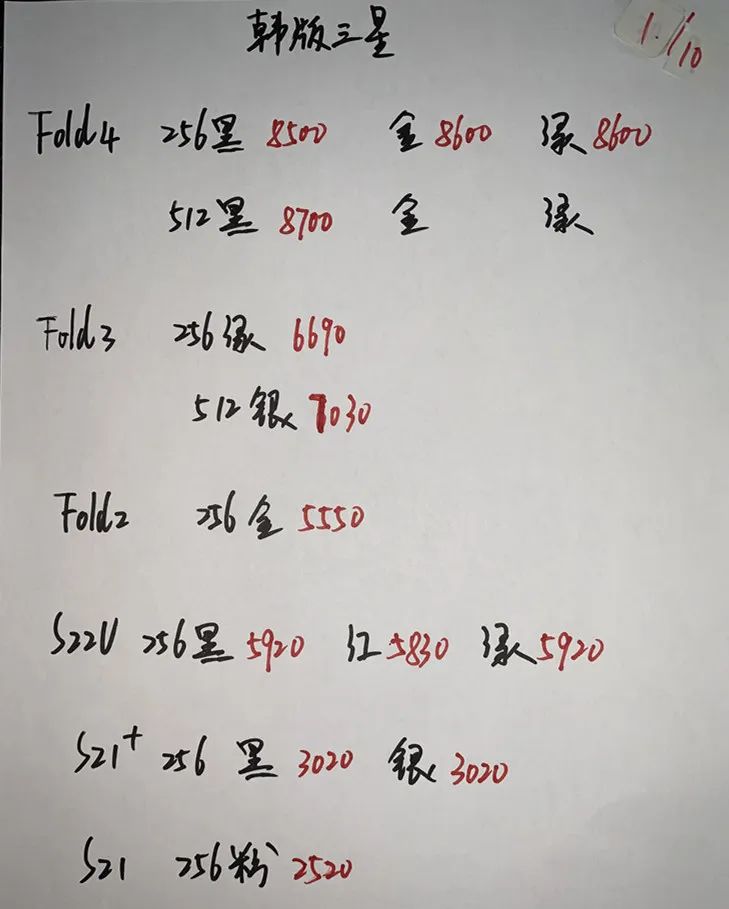 韩版三星
1/10
Fold4 256黑 8500 金 8600 绿 8600
512黑 8700 金 绿
Fold3 256绿 6690
512银 7030
Fold2 256金 5550
S22U 256黑 5920 红 5830 绿 5920
S21+ 256 黑 3020 银 3020
S21 256粉 2520